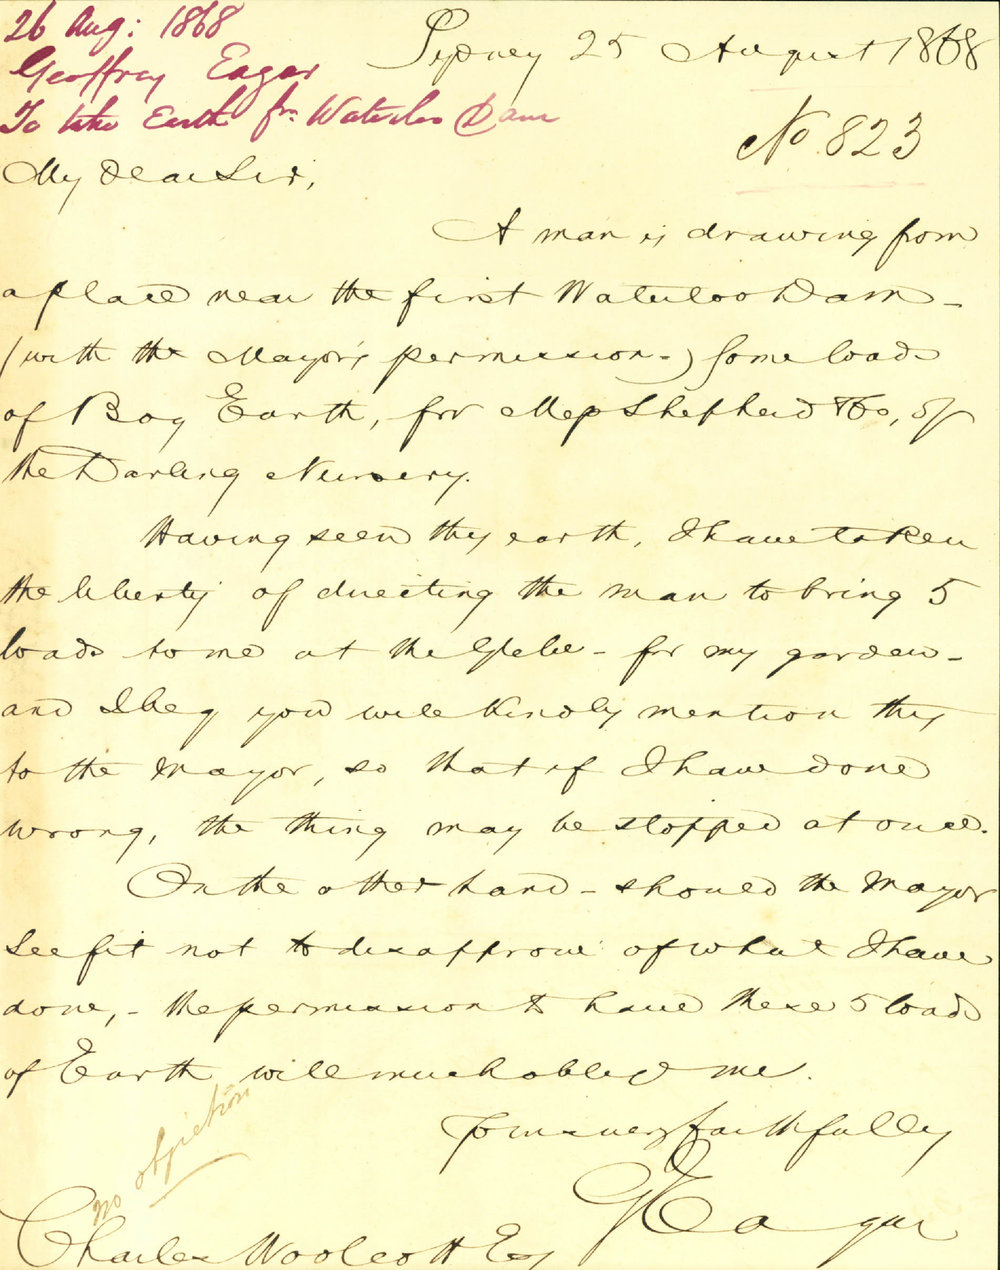 26 Aug: 1868
Geoffrey Eagar
To take Earth fm. Waterloo Dam
Sydney 25 August 1868
No 823
My dear Sir,
A man is drawing from
a place near the first Waterloo Dam -
(with the Mayor's permission -) some loads
of Bog Earth, for Mess Shepherd & Co, of
the Darling Nursery.
Having seen this earth, I have taken
the liberty of directing the man to bring 5
loads to me at the Glebe - for my garden -
and I beg you will kindly mention this
to the Mayor, so that if I have done
wrong, the thing may be stopped at once.
On the other hand - should the Mayor
see fit not to disapprove of what I have
done, - the permission to have these 5 loads
of Earth will much oblige me.
Yours very faithfully
G Eagar
no objection
Charles Woolcott Esq